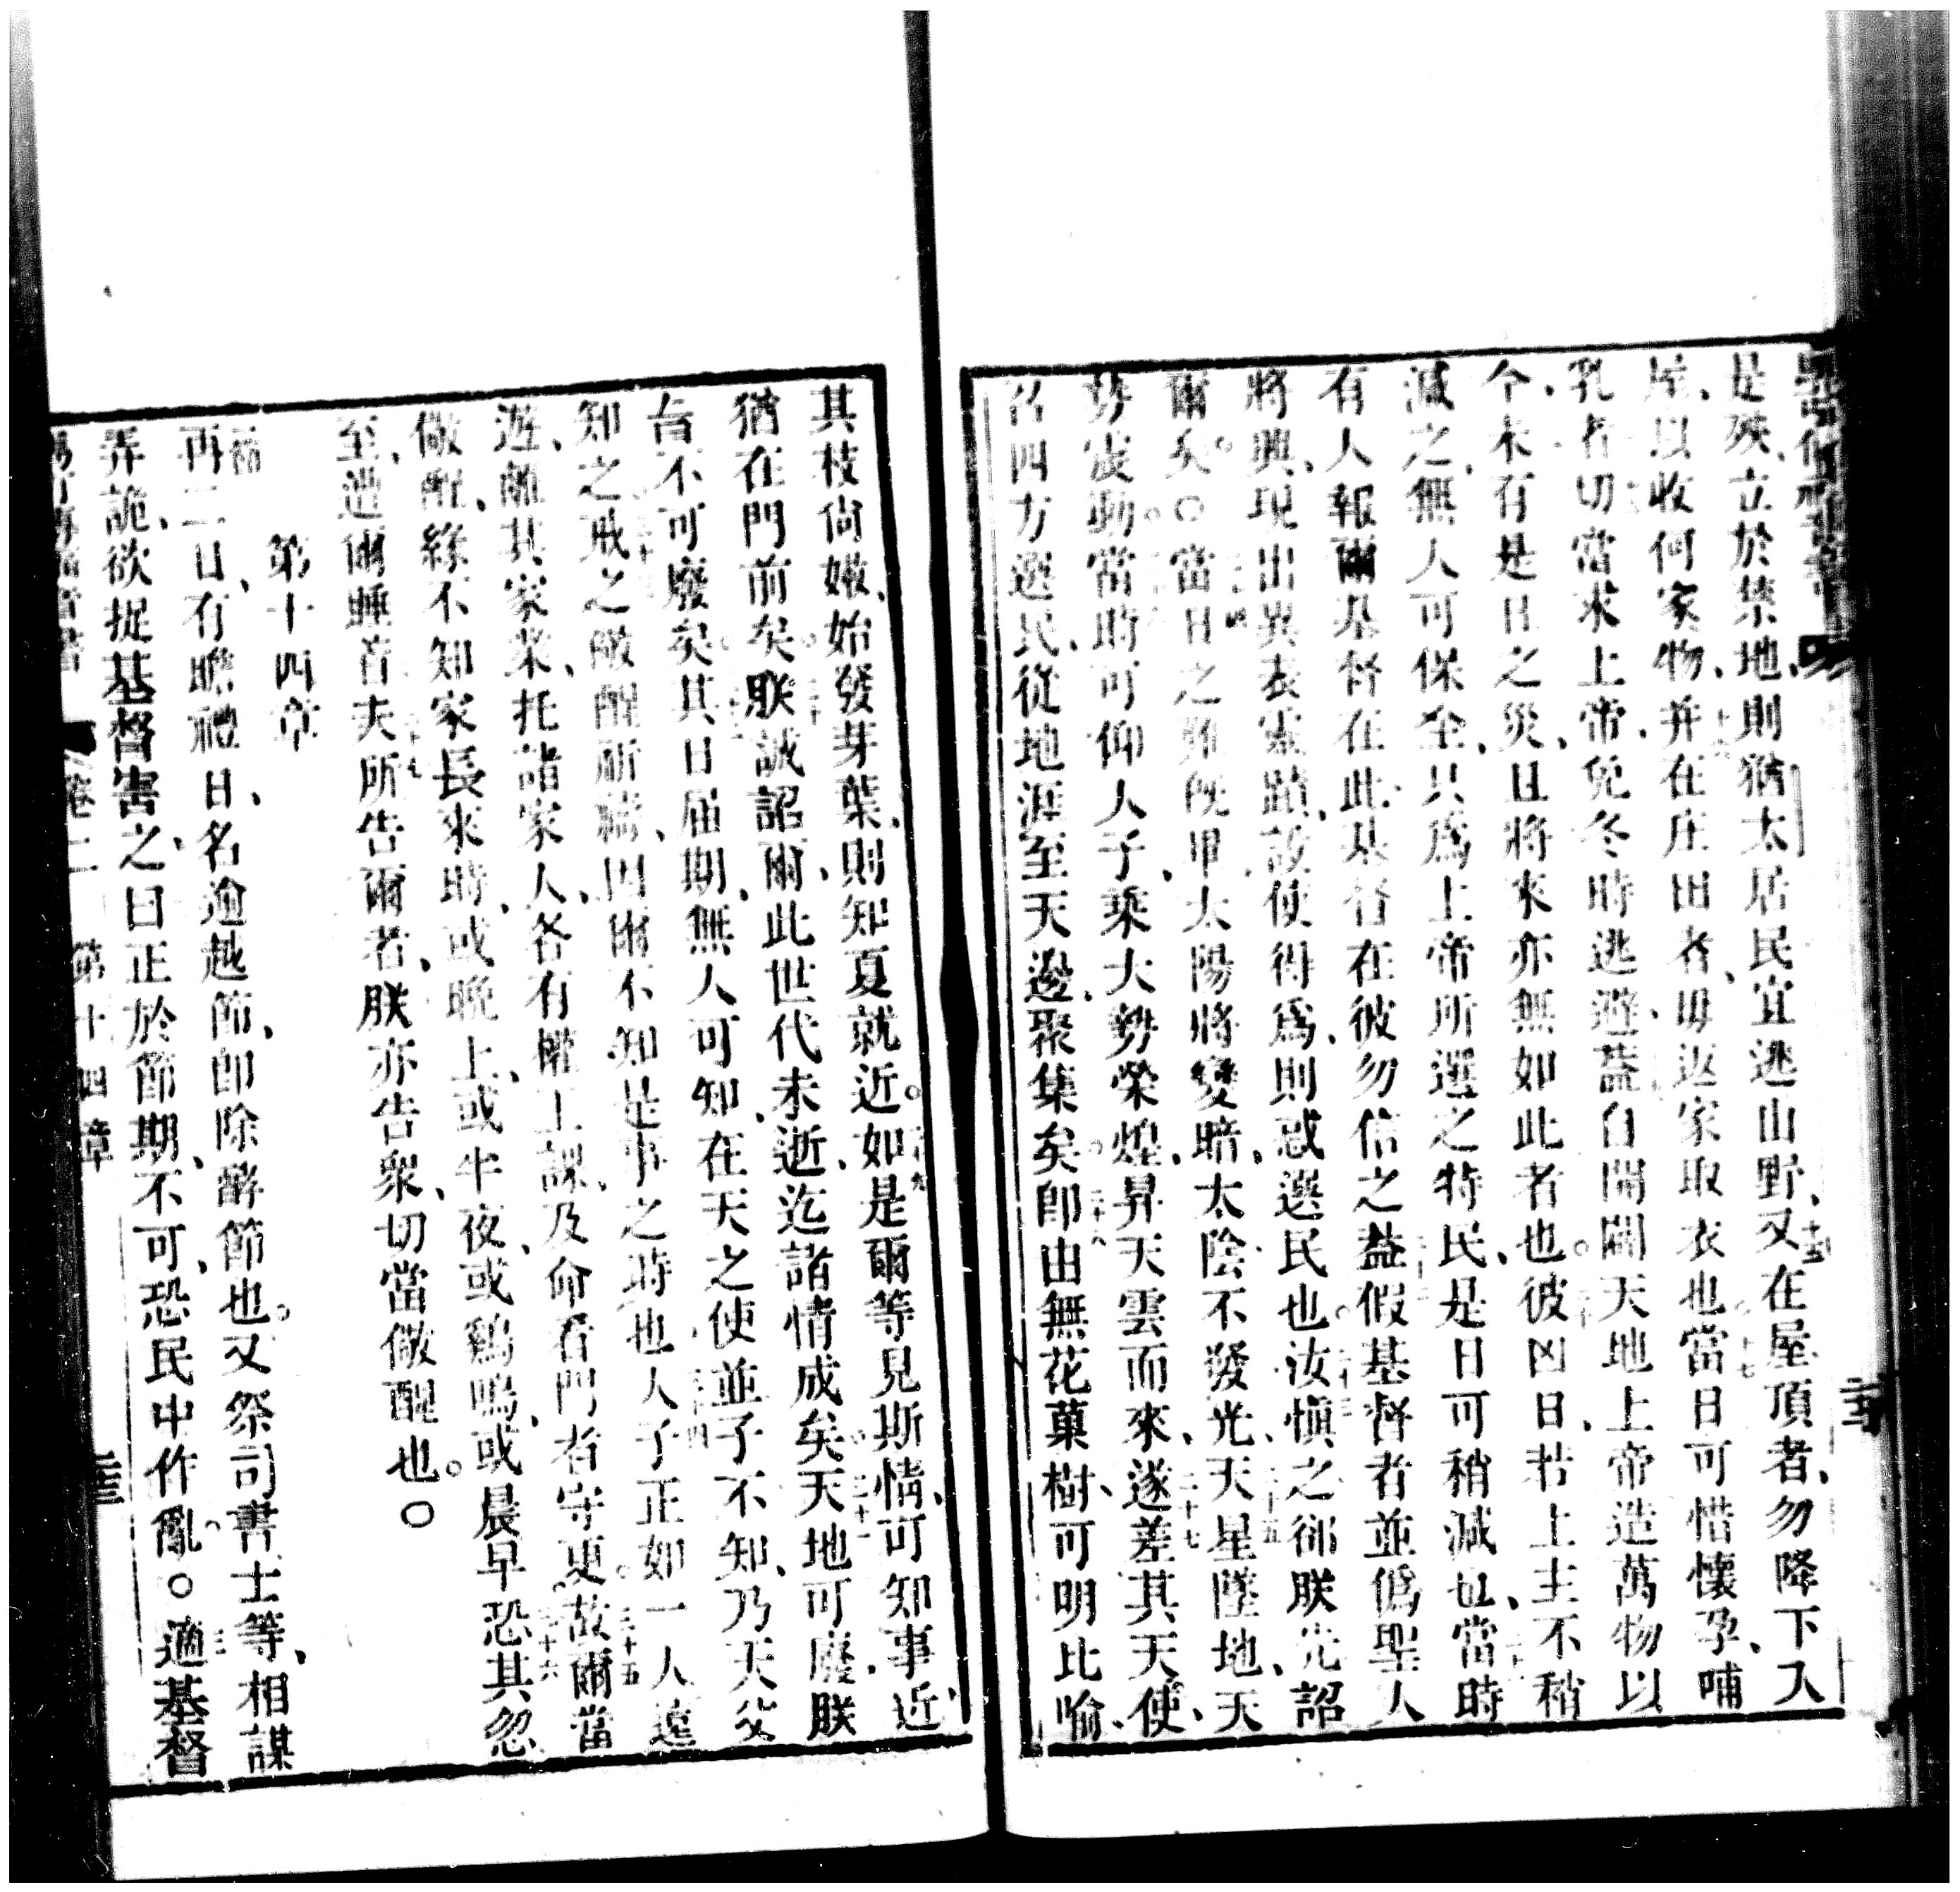 是殃、立於禁地、則猶太居民宜逃山野、又在屋頂者、勿降下入
屋、以收何家物、并在庄田者、毋返家取衣也、當日可惜懷孕、哺
乳者、切當求上帝、免冬時逃遊、葢自開闢天地上帝造萬物以
今、未有是日之災、且將來亦無如此者也。彼凶日、若上主不稍
減之、無人可保全、只為上帝所選之特民、是日可稍減也、當時
有人報爾、基督在此、基督在彼、勿信之、葢假基督者並僞聖人
將興、現出異表靈蹟、設使得為、則惑選民也。汝愼之、郤朕先詔
爾矣。○當日之難旣畢、太陽將變暗、太陰不發光、天星墜地、天
勢震動。當時可仰人子、乘大勢榮煌、昇天雲而來、遂差其天使、
名四方選民、從地涯至天邊、聚集矣。卽由無花菓樹、可明比喻、
其枝尙嫩、始發芽葉、則知夏就近。如是爾等見斯情、可知事近、
猶在門前矣。朕誠詔爾、此世代未逝、迄諸情成矣。天地可廢、朕
言不可廢矣。其日屆期、無人可知、在天之使並子不知、乃天父
知之、戒之儆醒祈禱、因爾不知是事之時也、人子正如一人遠
遊、離其家業、托諸家人、各有權工課、及命看門者守更。故爾當
儆醒、緣不知家長來時、或晚上、或半夜、或鷄鳴、或晨早、恐其忽
至、遭爾睡着。夫所告爾者、朕亦告衆、切當儆醒也。○
第十四章
再二日、有瞻禮日、名逾越節、卽除酵節也。又祭司書士等、相謀
弄詭、欲捉基督害之、曰、正於節期、不可、恐民中作亂。○適基督
卷二 第十四章